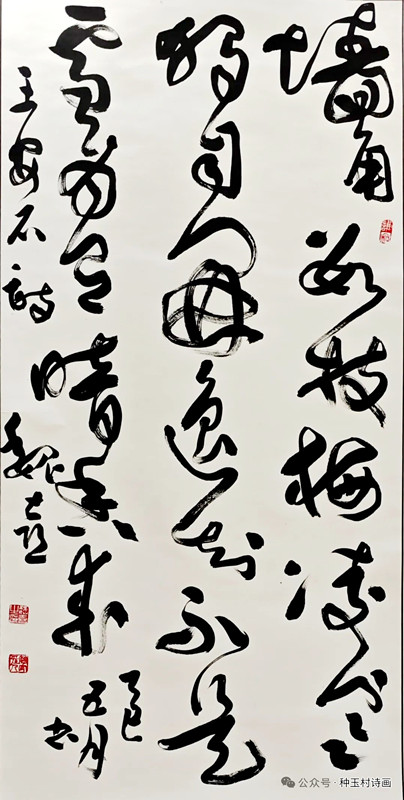 墙角数枝梅凌寒
独自开遥知不是
雪为有暗香来
乙巳
五月
书
王安石诗
魏
公众号 · 种玉村诗画